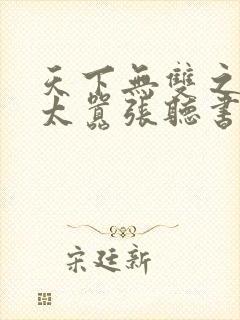 天下無雙之
太囂張聽書
宋廷新